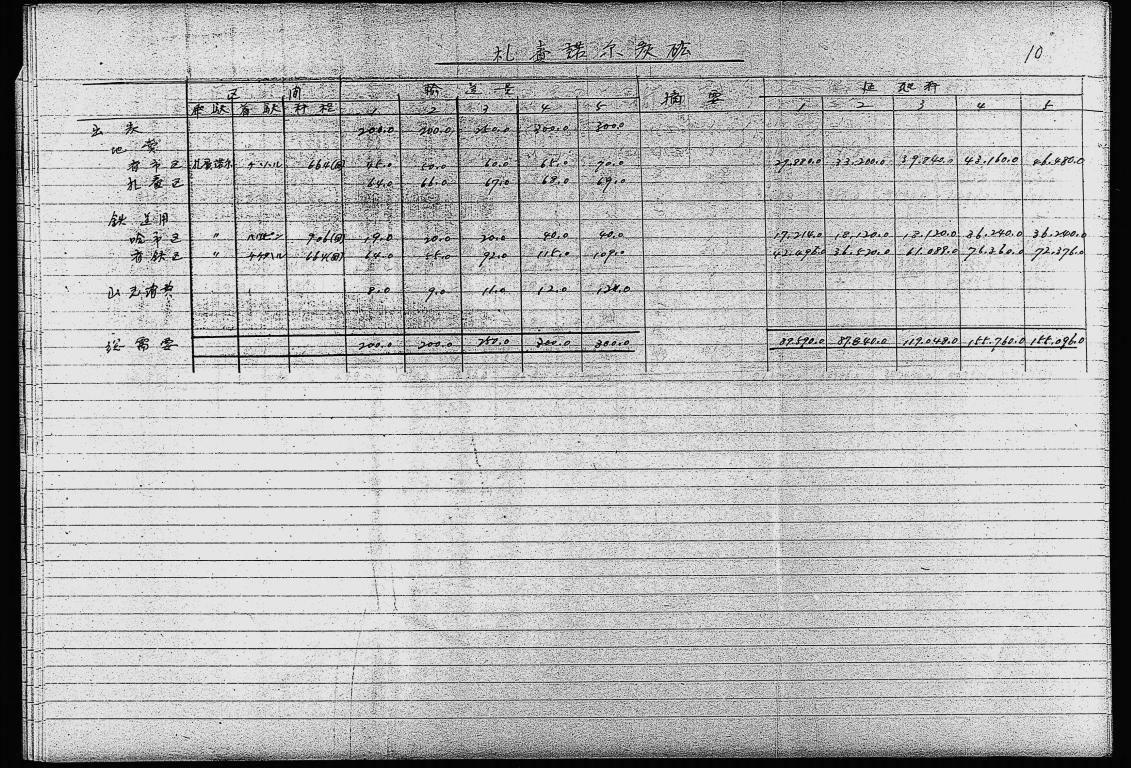 札賚諾尔炭砿
10
区間 輸送量 摘要 延瓲粁
発駅 着駅 粁程 1 2 3 4 5 1 2 3 4 5
出炭 200.0 200.0 250.0 300.0 300.0
地売
斉市区 札賚諾尔 チハル 664(国) 45.0 50.0 60.0 65.0 70.0 29.880.0 33.200.0 39.840.0 43.160.0 46.480.0
札賚区 64.0 66.0 67.0 68.0 69.0
鉄道用
哈市区 〃 ハルピン 906(国) 19.0 20.0 20.0 40.0 40.0 17.214.0 18.120.0 18.120.0 36.240.0 36.240.0
斉鉄区 〃 チチハル 664(国) 64.0 55.0 92.0 115.0 109.0 42.496.0 36.520.0 61.088.0 76.360.0 72.376.0
山元消費 8.0 9.0 11.0 12.0 12.0
総需要 200.0 200.0 250.0 300.0 300.0 89.590.0 87.840.0 119.048.0 155.760.0 155.096.0